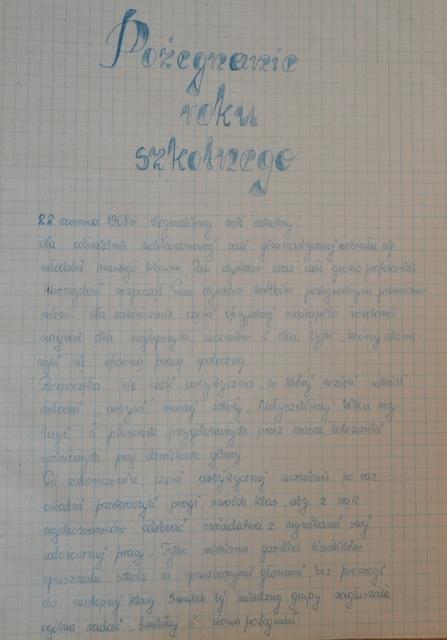 Pożegnanie
roku
szkolnego
22 czerwca 1968r żegnaliśmy rok szkolny.
Na odświętnie udekorowanej sali gimnastycznej zebrała się
młodzież naszego liceum Pan dyrektor oraz całe grono profesorskie
Uroczystość rozpoczął Pan dyrektor krótkim pożegnalnym przemówie
niem. Na zakończenie części oficjalnej nastąpiło rozdanie
nagród dla najlepszych uczniów i dla tych, którzy odzna
czyli się ofiarną pracą społeczną.
Rozpoczęła się część artystyczna, w której wzięli udział
młodzi artyści naszej szkoły. Usłyszeliśmy kilka
i piosenek przygotowanych przez nasze koleżanki
przy dźwiękach gitary.
Po zakończeniu części artystycznej uczniowie po raz
ostatni przekroczyli progi swoich klas, aby z rąk
wychowawców odebrać świadectwa z wynikami swej
całorocznej pracy. Tylko nieliczna garstka
opuszczała szkołę ze spuszczonymi głowami bez promocji
do następnej klasy. Smutek tej nielicznej grupy zagłuszała
ogólna radość, śmiechy i słowa pożegnań.